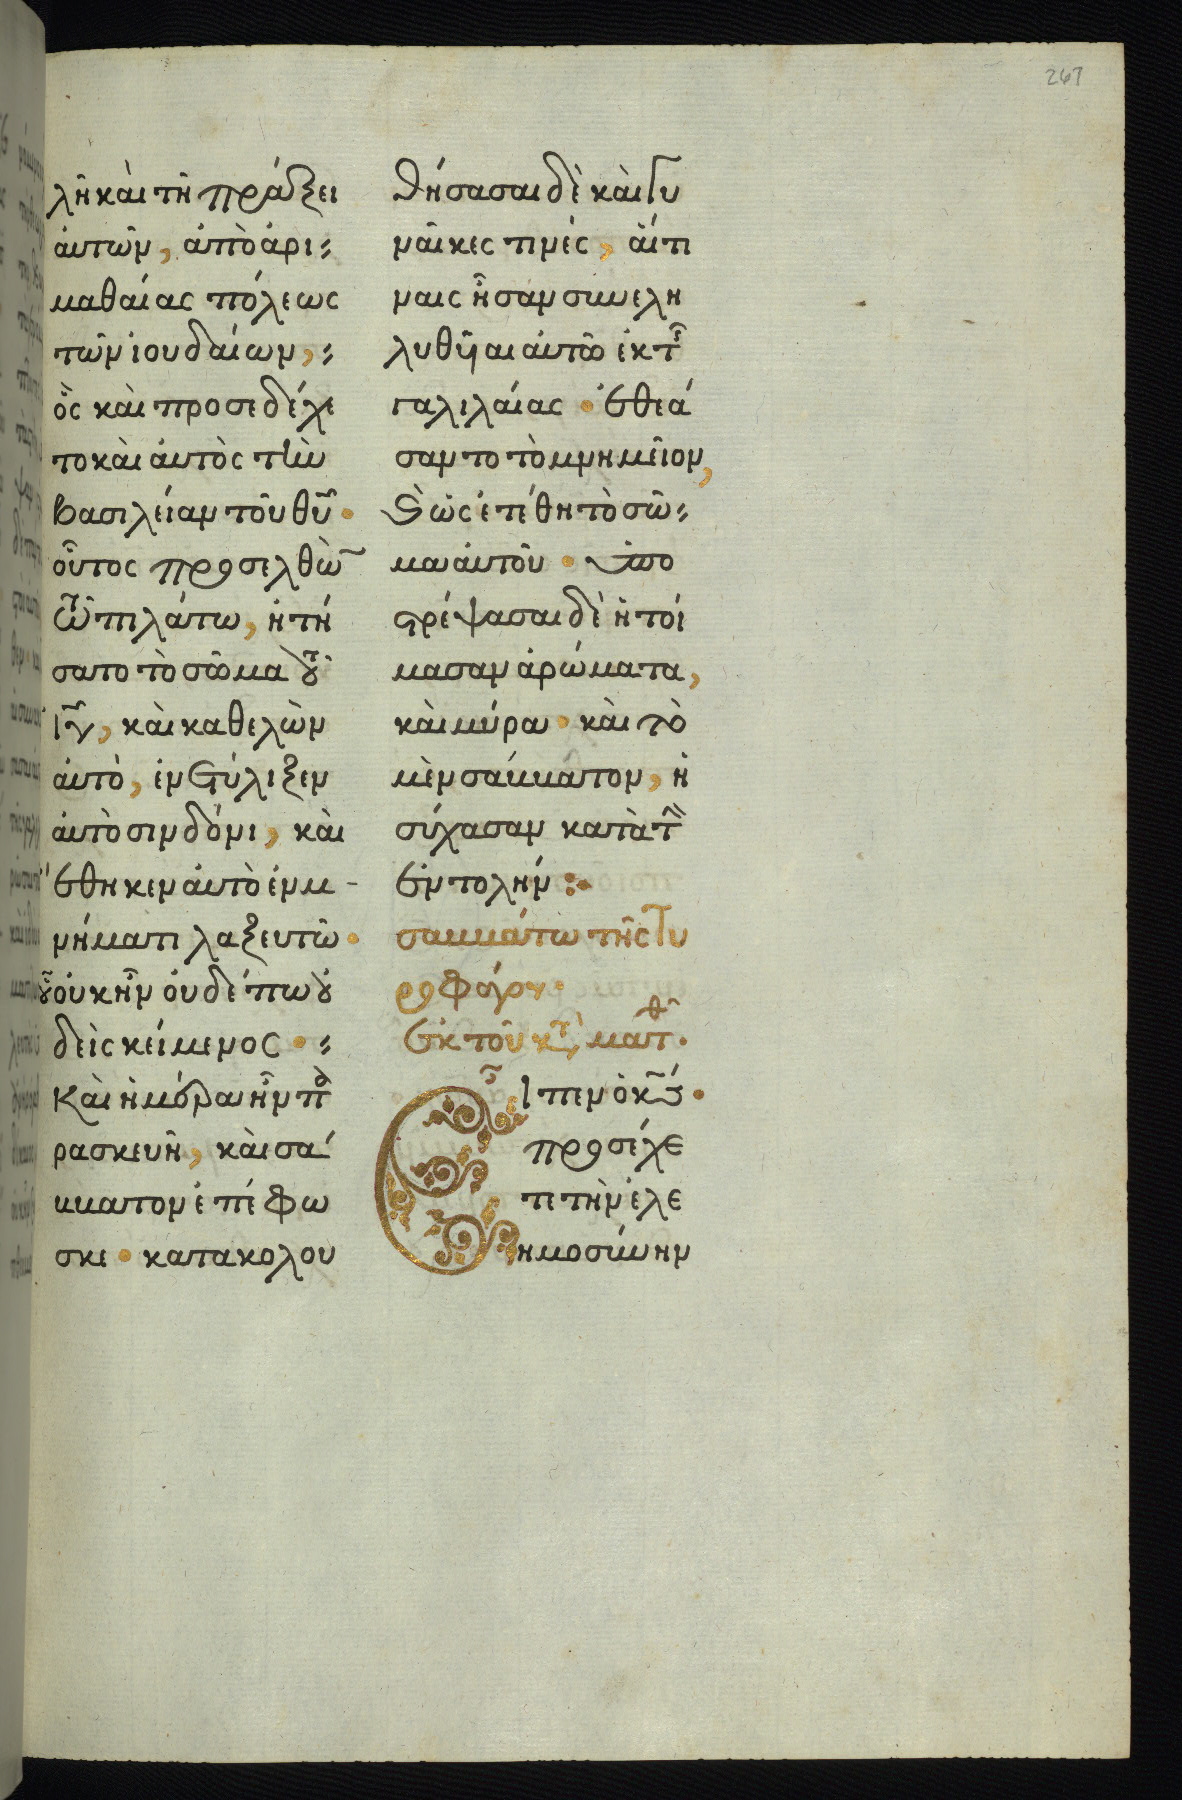 267
λῆ καὶ τῆ πράξει
ἀυτῶν, ἀπὸ ἀρι
μαθαίας πόλεως
τῶν ἰουδαίων,
ὃς καὶ προσεδέχε
το καὶ ἀυτὸς τὴν
βασιλείαν τοῦ θῦ.
οὗτος προσελθὼ
τῶ πιλάτω, ἠτή
σατο τὸ σῶμα τοῦ
ἰῦ, καὶ καθελὼν
ἀυτὸ, ἐνετύλιξεν
ἀυτὸ σινδόνι, καὶ
ἔθηκεν ἀυτὸ ἐν μ
νήματι λαξευτῶ.
οὗ οὐκ ἦν οὐδέπω οὐ
δεὶς κείμενος.
Καὶ ἡμέρα ἦν πα
ρασκευῆ, καὶ σά
ββατον ἐπέφω
σκε. κατακολου
θήσασαι δὲ καὶ γυ
ναῖκες τινές, αἵτι
ναις ἦσαν συνελη
λυθῆαι ἀυτῶ ἐκ τῆ
γαλιλαίας. ἐθεά
σαντο τὸ μνημεῖον,
καὶ ὡς ἐτέθη τὸ σῶ
μα ἀυτοῦ. ὑπο
στρέψασαι δὲ ἡτοί
μασαν ἀρώματα,
καὶ μύρα. καὶ τὸ
μὲν σάββατον, ἡ
σύχασαν κατὰ τὴ
ἐντολήν:
σαββάτω τῆς τυ
ροφάγου.
ἐκ τοῦ κτ, ματθ.
Εἶπεν ὁ κς.
προσέχε
τε τὴν ἐλε
ημοσύνην